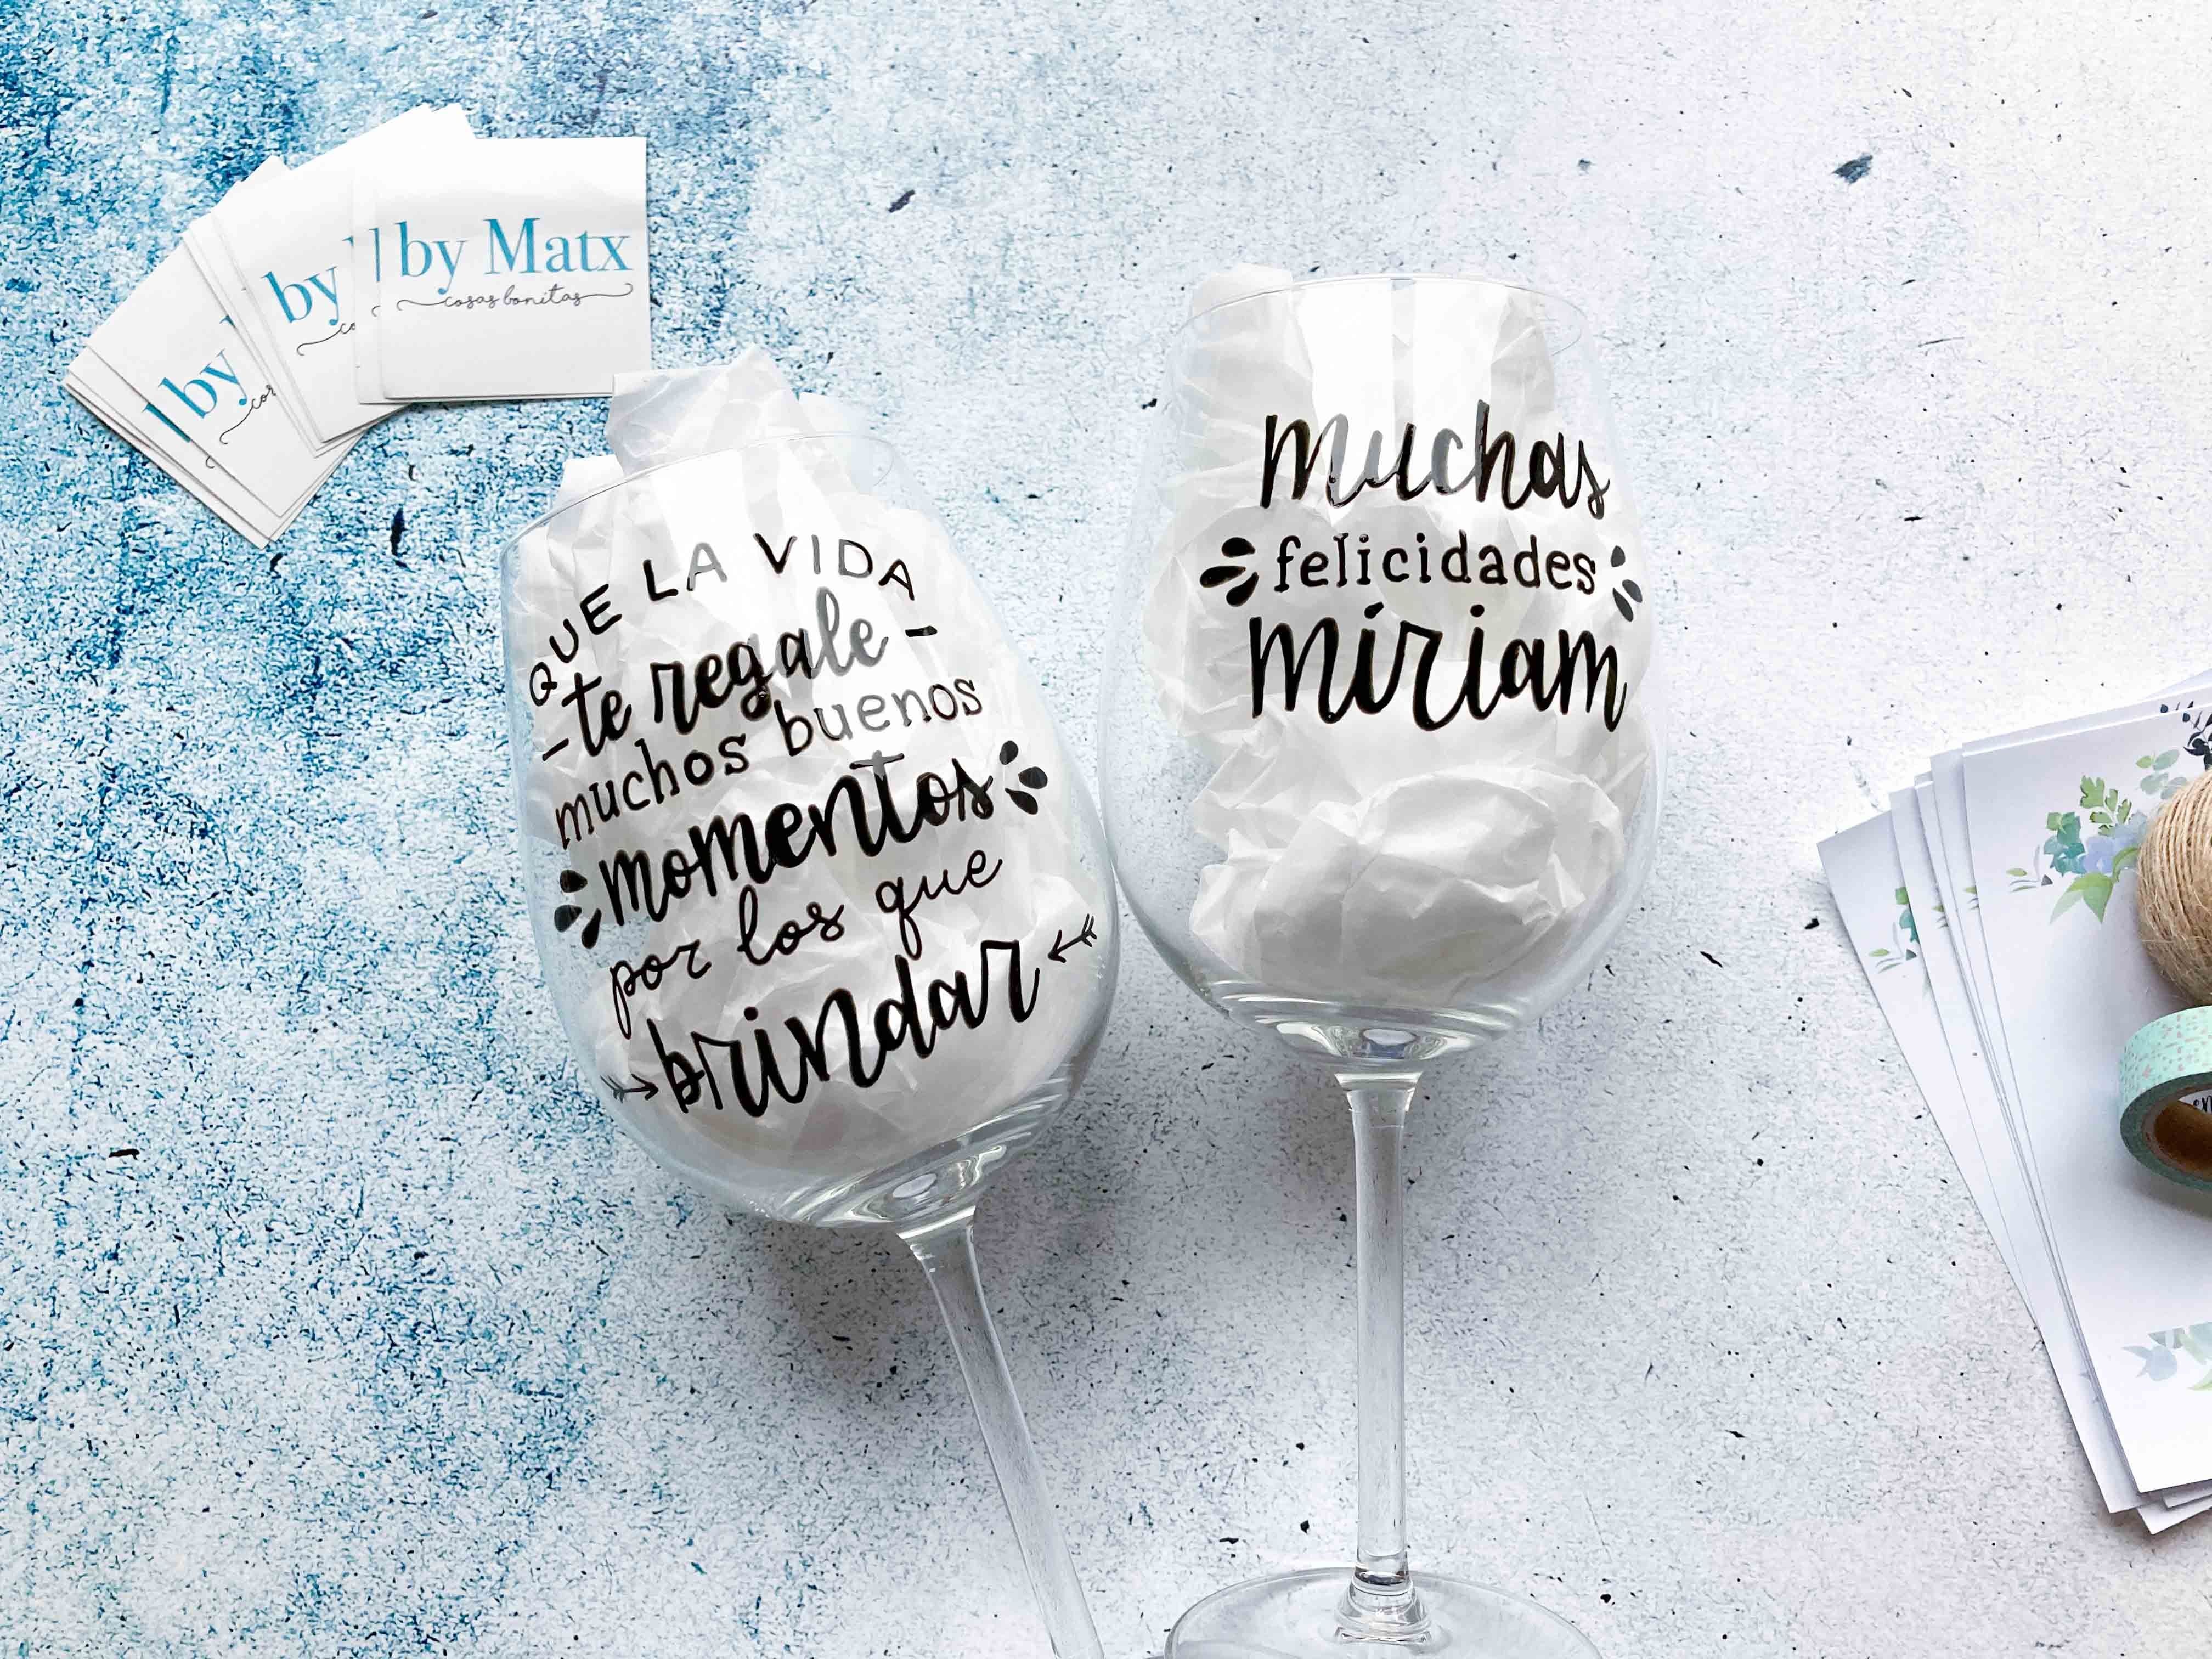 by Matx
cosas bonitas
by
by
QUE LA VIDA
te regale
muchos buenos
momentos
por los que
brindar
muchas
felicidades
Míriam